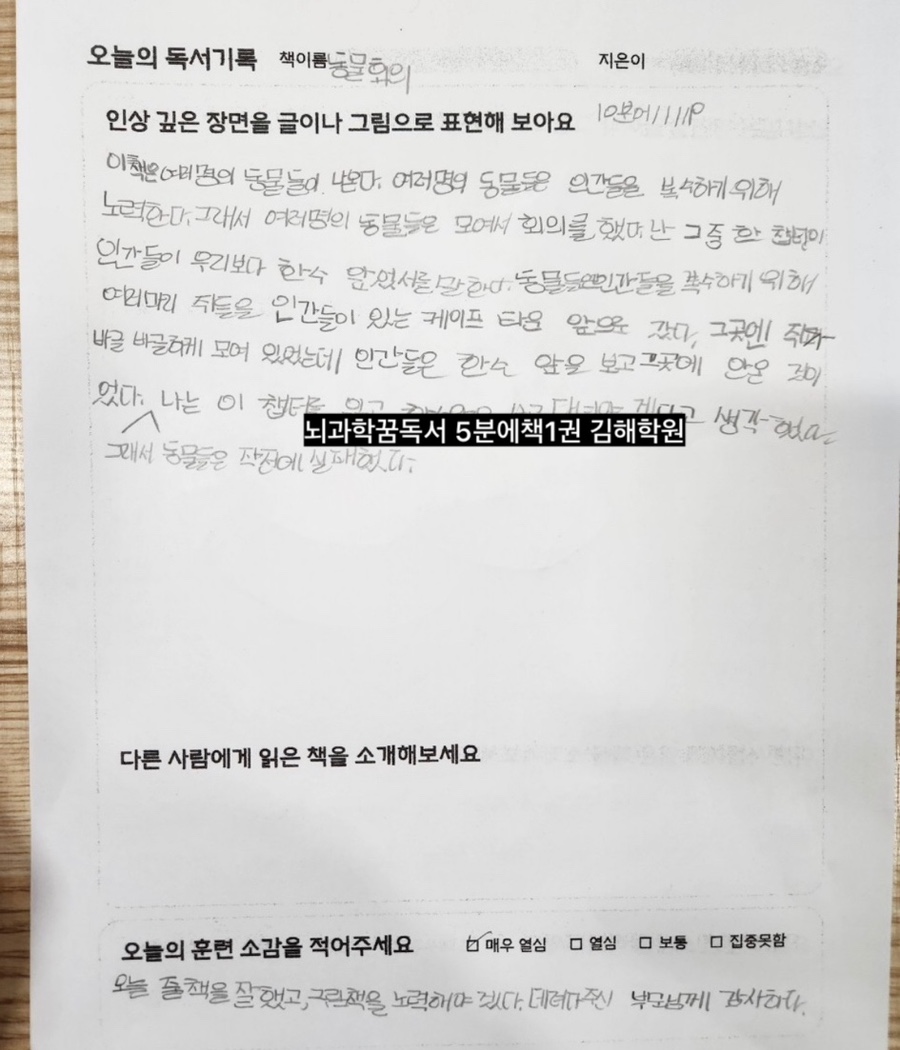 오늘의 독서기록 책이름 동물회의 지은이
인상 깊은 장면을 글이나 그림으로 표현해 보아요 10분에 111P
이책은 여러명의 동물들이 나온다. 여러명의 동물들은 인간들을 복수하기 위해
노력한다. 그래서 여러명의 동물들은 모여서 회의를 했다. 난 그중 한 챕터인
인간들이 우리보다 한수 앞 말한다. 동물들은 인간들을 복수하기 위해
여러마리 쥐들은 인간들이 있는 케이프 타운 앞으로 갔다. 그곳엔 쥐가
바글 바글하게 모여 있었는데 인간들은 한수 앞을 보고 그곳에 안온 것이
었다. 나는 이 챕터를 읽고 생각했다.
그래서 동물들은 작전에 실패했다.
뇌과학꿈독서 5분에책1권 김해학원
다른 사람에게 읽은 책을 소개해보세요
오늘의 훈련 소감을 적어주세요 매우 열심 열심 보통 집중못함
오늘 줄책을 잘했고, 그림책을 노력해야 겠다. 데려다주신 부모님께 감사하다.